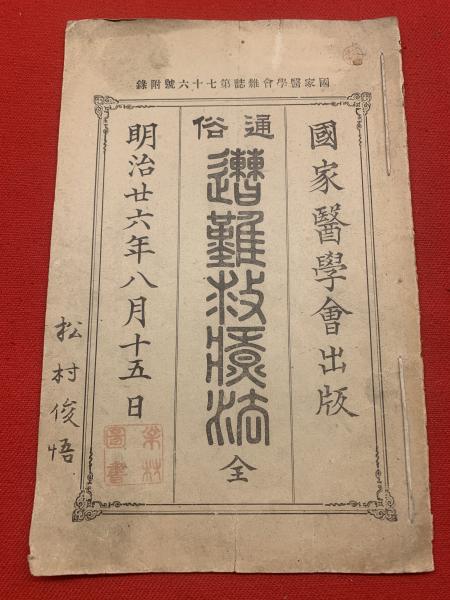 國家醫學會雜誌第七十六號附錄
國家醫學會出版
通俗
遭難救療法 全
明治廿六年八月十五日
松村俊悟
圖書